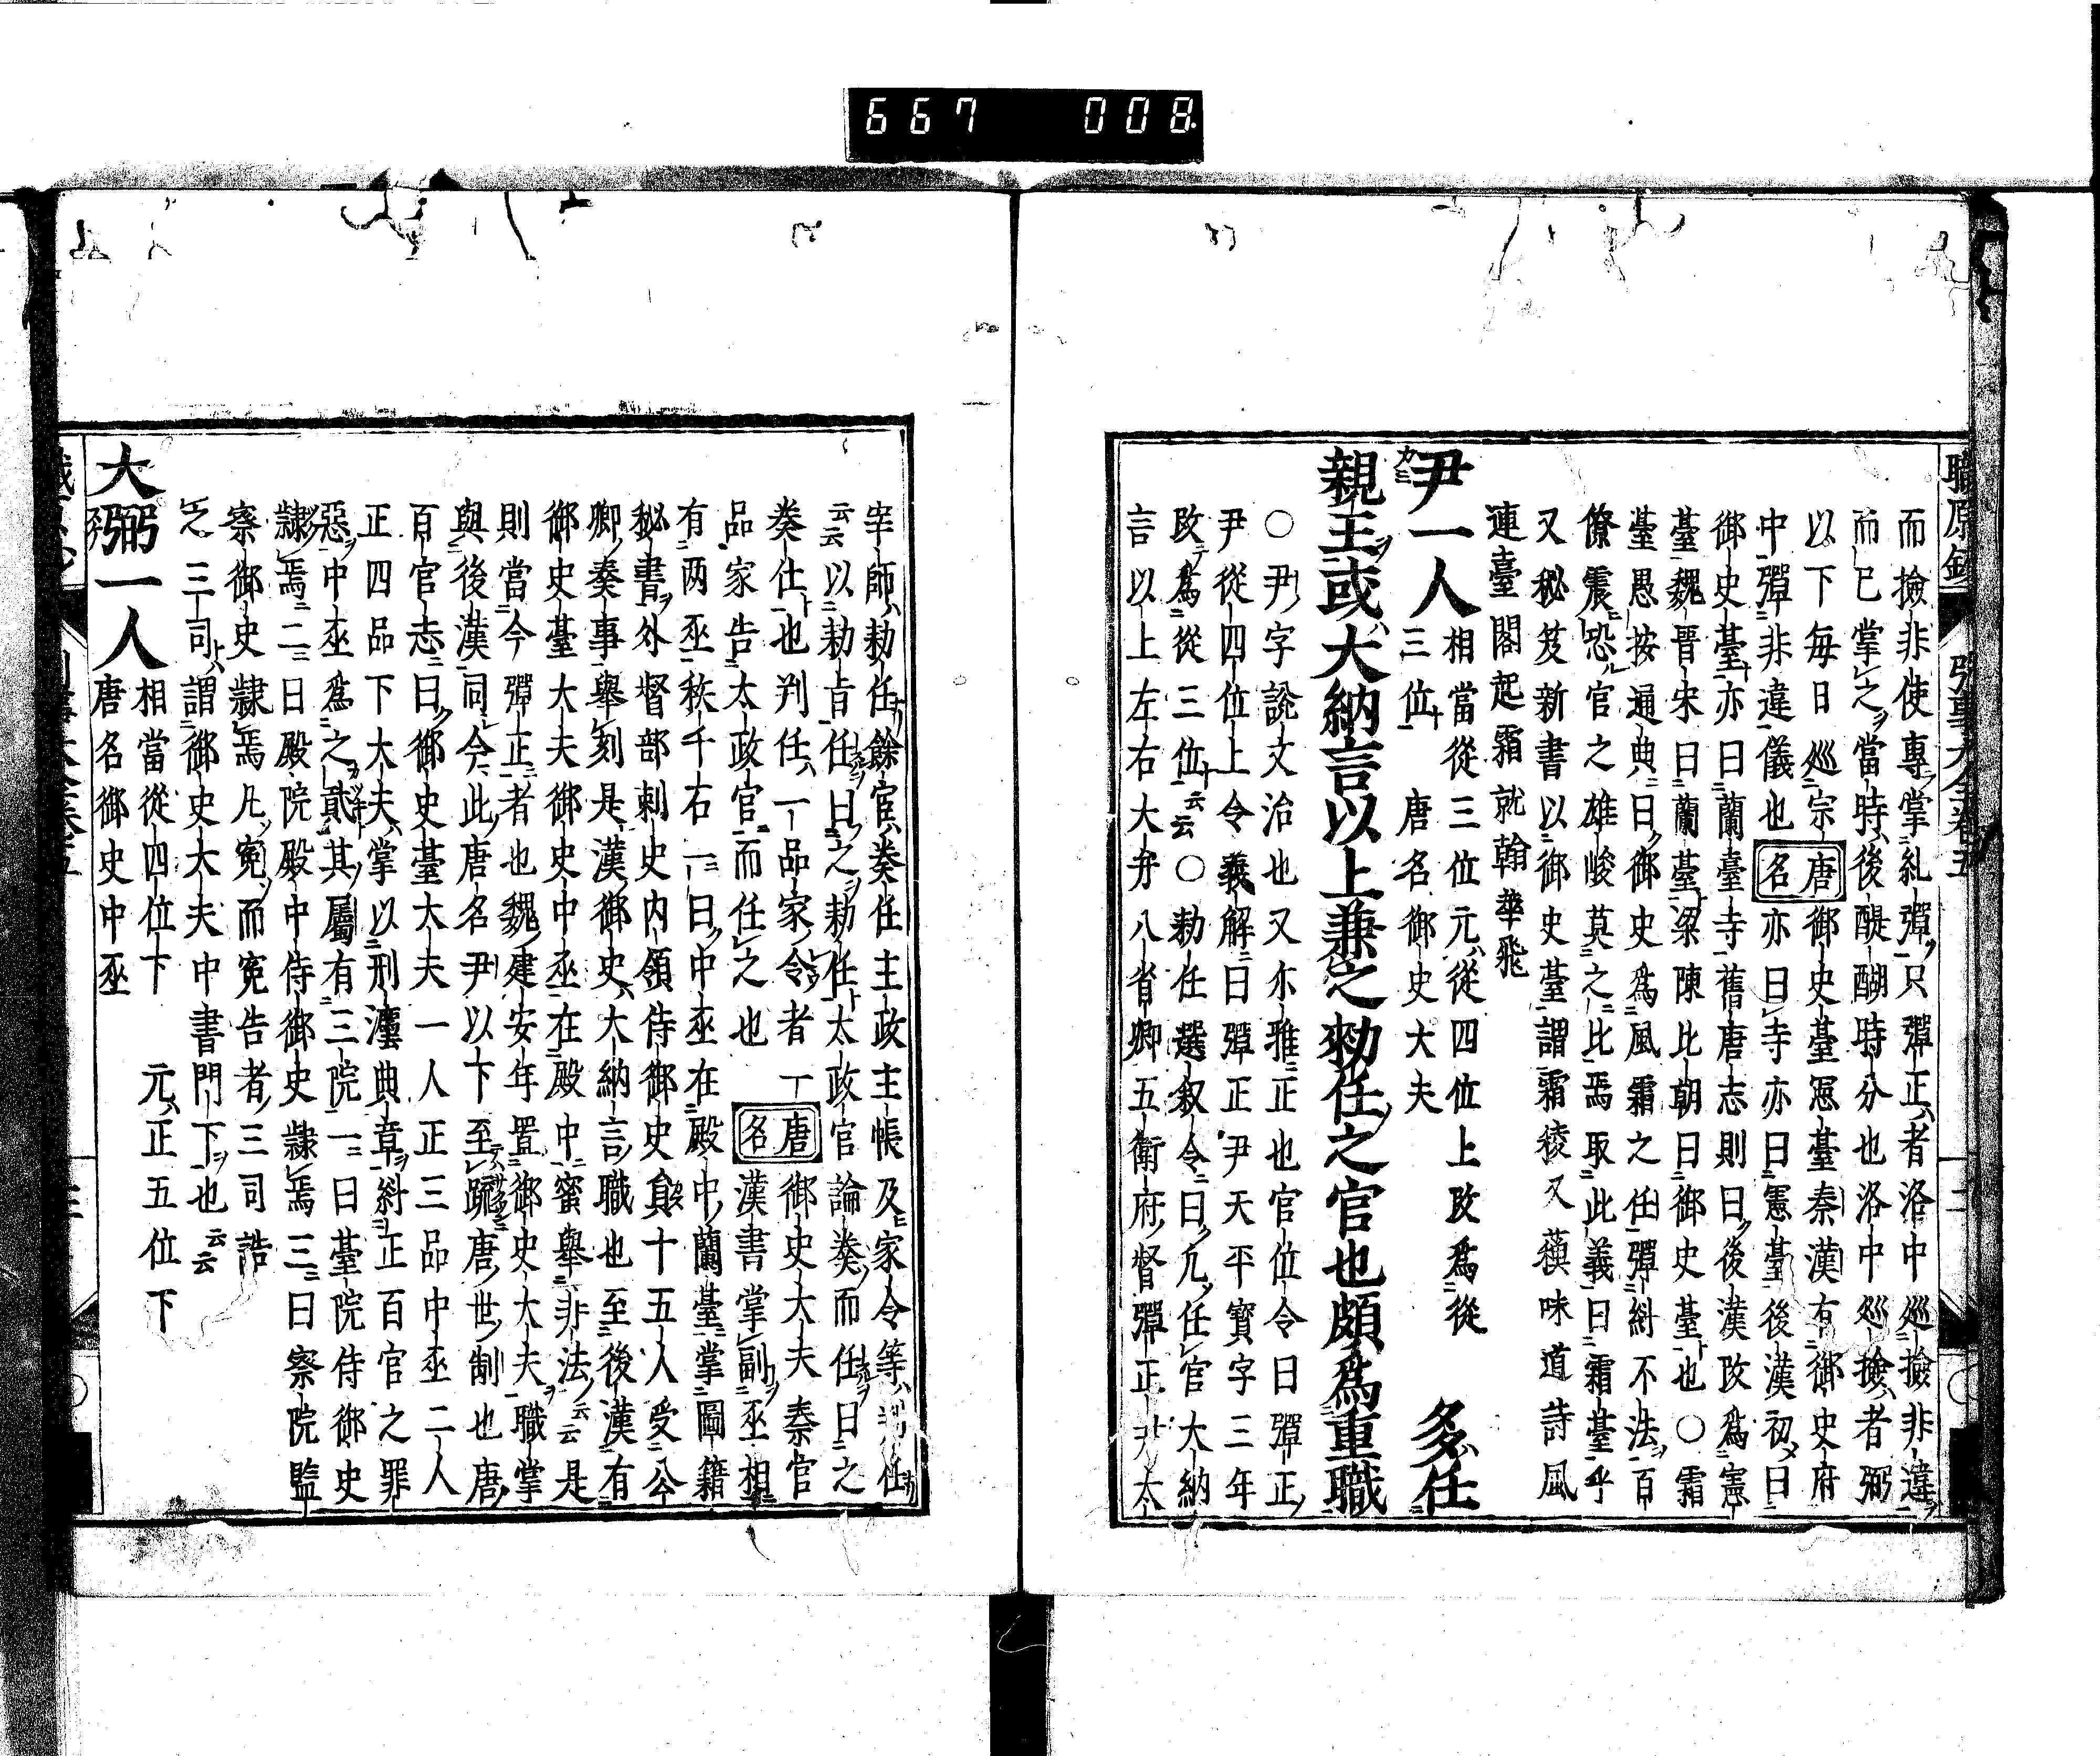 667 008
職原鈔 引事大全卷五
而撿非使專掌糺彈只彈正者洛中巡撿非違
而已掌之當時後醍醐時分也洛中巡撿者弼
以下每日巡宗唐名御史臺冩臺秦漢有御史府
中彈非違儀也亦曰寺亦曰憲臺後漢初曰
御史臺亦曰蘭臺寺舊唐志則曰後漢改為憲
臺魏晉宋曰蘭臺梁陳比朝曰御史臺也〇霜
臺愚按通典曰御史為風霜之任彈糾不法百
僚震恐官之雄峻莫之比焉取此義曰霜臺乎
又秘笈新書以御史臺謂霜稜又蘓味道詩風
連臺閣起霜就翰華飛
尹一人相當從三位元從四位上改為從
三位 唐名御史大夫 多任
親王或大納言以上兼之勑任之官也頗為重職
〇尹字說文治也又尒雅正也官位令曰彈正
尹從四位上令義解曰彈正尹天平寳字三年
改為從三位云云〇勅任選叙令曰凡任官大納
言以上左右大弁八省卿五衛府督彈正尹太
宰師勅任餘官奏任主政主帳及家令等判任
云云以勅旨任曰之勅任太政官論奏而任曰之
奏任也判任一品家令者一
品家告太政官而任之也 唐名 御史大夫秦官
漢書掌副丞相
有两丞秩千石一曰中丞在殿中蘭臺掌圖籍
秘書外督部刺史内領侍御史負十五人受公
卿奏事舉刻是漢御史大納言職也至後漢有
御史臺大夫御史中丞在殿中蜜舉非法云云是
則當今彈正者也魏建安年置御史大夫職掌
與後漢同今此唐名尹以下至䟽唐世制也唐
百官志曰御史臺大夫一人正三品中丞二人
正四品下大夫掌以刑灋典章糾正百官之罪
惡中丞為之貳其屬有三院一曰臺院侍御史
隷焉二曰殿院殿中侍御史隷焉三曰察院監
察御史隷焉凡寃而寃告者三司詰
之三司謂御史大夫中書門下也云云
大弼一人相當從四位下 元正五位下
唐名御史中丞